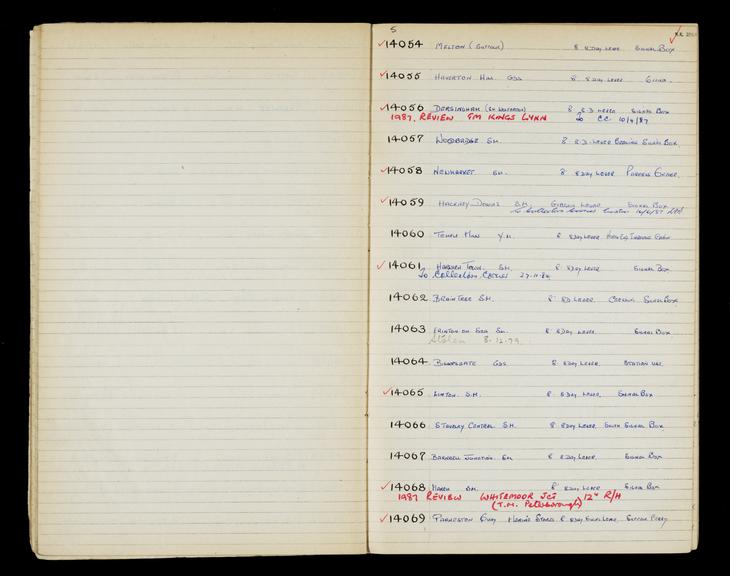 5
14054 MELTON (SUFFOLK) 8 8 DAY LEVER SIGNAL BOX
14055 HAVERTON HILL GDS 8 8 DAY LEVER
14056 DERSINGHAM 8 8.D. LEVER SIGNAL BOX
1987. REVIEW TM KINGS LYNN To CC. 10/9/87
14057 WOODBRIDGE S.M. 8 8.D. LEVER SIGNAL BOX
14058 NEWMARKET S.M. 8 8 DAY LEVER PARCELS
14059 HACKNEY DOWNS S.M. SIGNAL BOX
14060 TEMPLE Y.M. 8 8 DAY LEVER
14061 TOWN. S.M. 8 8 DAY LEVER SIGNAL BOX
To COLLECTORS CORNER
14062 BRAINTREE S.M. 8 8D LEVER SIGNAL BOX
14063 FRINTON ON SEA S.M. 8 8 DAY LEVER SIGNAL BOX
Stolen 8.12.79
14064 BISHOPSGATE GDS 8 8 DAY LEVER STATION USE
14065 LINTON S.M. 8 8 DAY LEVER SIGNAL BOX
14066 STAVELEY CENTRAL S.M. 8 8 DAY LEVER SOUTH SIGNAL BOX
14067 BARNWELL JUNCTION S.M. 8 8 DAY LEVER SIGNAL BOX
14068 MARCH S.M. 8 8 DAY LEVER SIGNAL BOX
1987 REVIEW WHITEMOOR JCT 12" R/H
(T.M. Peterborough)
14069 PARKESTON QUAY MARINE STORES 8 8 DAY